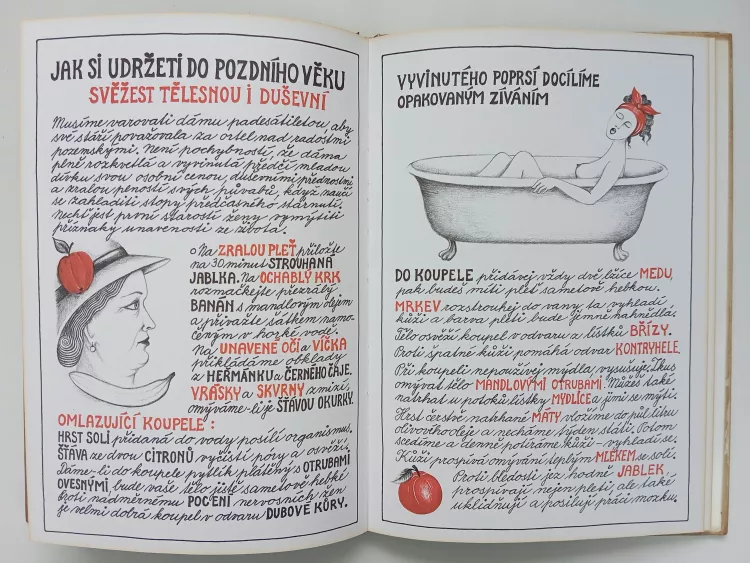 JAK SI UDRŽETI DO POZDNÍHO VĚKU
SVĚŽEST TĚLESNOU I DUŠEVNÍ
Musíme varovati dámu padesátiletou, aby
své stáří považovala za ortel nad radostmi
pozemskými. Není pochybností, že dáma
plně rozkvetlá a vyvinutá předčí mladou
dívku svou osobní cenou, duševními přednostmi
a zralou plností svých půvabů, když naučí
se zahladiti stopy předčasného stárnutí.
Nechť jest první starostí ženy vymýtiti
příznaky unavenosti ze života.
Na ZRALOU PLEŤ přiložte
na 30 minut STROUHANÁ
JABLKA. Na OCHABLÝ KRK
rozmačkejte přezrálý
BANÁN s mandlovým olejem
a přivažte šátkem namo-
čeným v horké vodě.
Na UNAVENÉ OČI a VÍČKA
přikládáme obklady
z HEŘMÁNKU a ČERNÉHO ČAJE.
VRÁSKY a SKVRNY zmizí,
omýváme-li je ŠŤÁVOU OKURKY.
OMLAZUJÍCÍ KOUPELE:
HRST SOLI přidaná do vody posílí organismus.
ŠŤÁVA ze dvou CITRONŮ vyčistí póry a osvěží.
Dáme-li do koupele pytlík plátěný s OTRUBAMI
OVESNÝMI, bude vaše tělo jistě sametově hebké
Proti nadměrnému POCENÍ nervosních žen
je velmi dobrá koupel v odvaru DUBOVÉ KŮRY.
VYVINUTÉHO POPRSÍ DOCÍLÍME
OPAKOVANÝM ZÍVÁNÍM
DO KOUPELE přidávej vždy dvě lžíce MEDU,
pak budeš míti pleť sametově hebkou.
MRKEV rozstrouhej do vany, ta vyhladí
kůži a barva pleti bude jemně nahnědlá.
Tělo osvěží koupel v odvaru z lístků BŘÍZY.
Proti špatné kůži pomáhá odvar KONTRYHELE.
Při koupeli nepoužívej mýdla, vysušuje. Zkus
omývat tělo MANDLOVÝMI OTRUBAMI. Můžeš také
natrhat u potoků lístky MYDLICE a jimi se mýti.
Hrst čerstvě natrhané MÁTY vložíme do půl litru
olivového oleje a necháme týden stát. Potom
scedíme a denně potíráme kůži - vyhladí se.
Kůži prospívá omývání teplým MLÉKEM se solí.
Proti bledosti jez hodně JABLEK,
prospívají nejen pleti, ale také
uklidňují a posilují práci mozku.